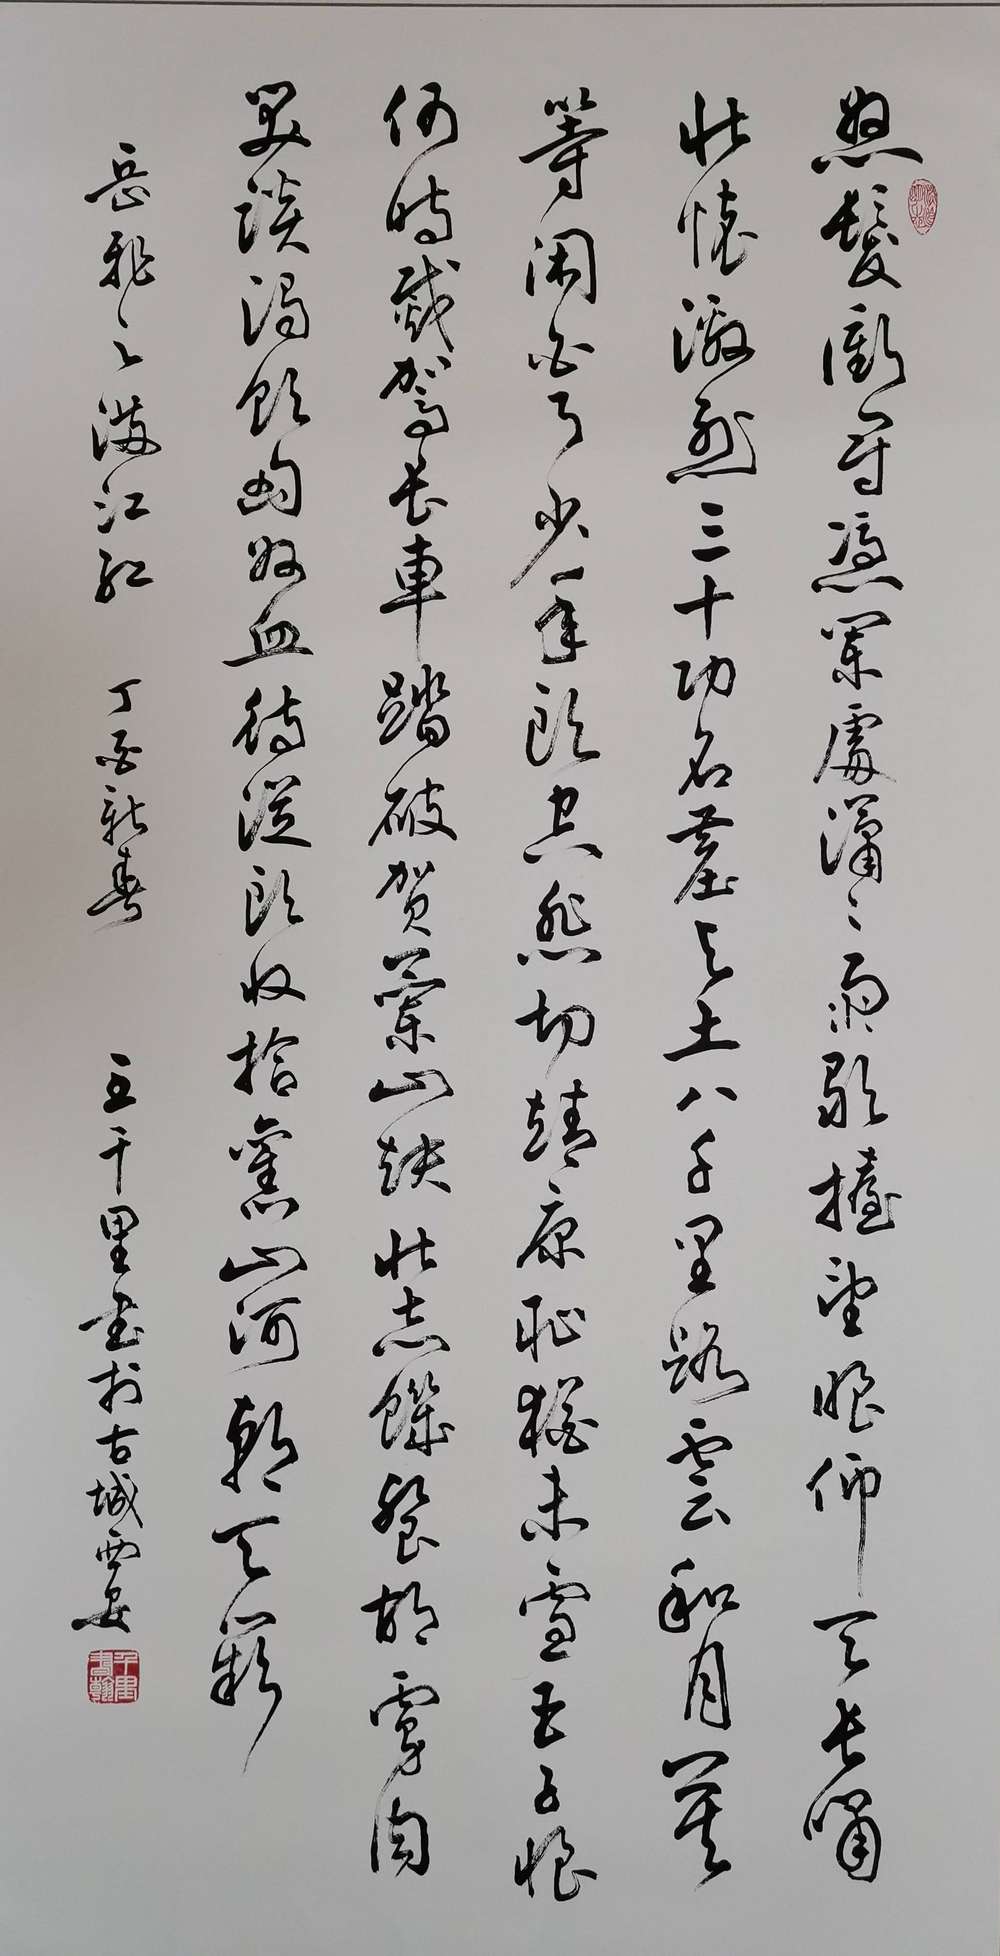 怒髮衝冠憑闌處瀟々雨歇擡望眼仰天長嘯
壯懷激烈三十功名塵與土八千里路雲和月莫
等閑白了少年頭空悲切靖康恥猶未雪臣子恨
何時滅駕長車踏破賀蘭山缺壯志饑餐胡虜肉
笑談渴飲匈奴血待從頭收拾舊山河朝天闕
岳飛之滿江紅 丁酉新春 王千里書於古城西安
千里書翰